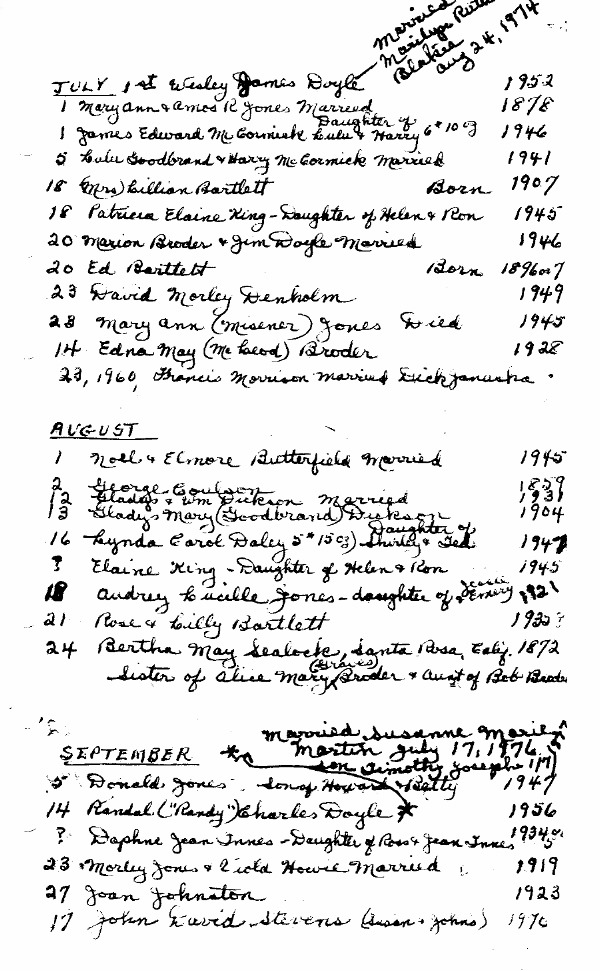 Married
Marilyn Ruth
Blakee
Aug 24, 1974
JULY 1st Wesley James Doyle 1952
1 Mary Ann & Amos R Jones Married 1878
Daughter of
1 James Edward McCormick Lulu & Harry 6# 10 oz 1946
5 Lulu Goodbrand & Harry McCormick Married 1941
18 (Mrs) Lillian Bartlett Born 1907
18 Patricia Elaine King - Daughter of Helen & Ron 1945
20 Marion Broder & Jim Doyle Married 1946
20 Ed Bartlett Born 1896 or 7
23 David Morley Denholm 1949
28 Mary Ann (Misener) Jones Died 1945
14 Edna May (McLeod) Broder 1928
23, 1960, Francis Morrison married Dick Janushka
AUGUST
1 Noel & Elmore Butterfield Married 1945
2 George Coulson 1859
12 Gladys & Wm Dickson Married 1931
13 Gladys Mary (Goodbrand) Dickson 1904
Daughter of
16 Lynda Carol Daley 5# 15 oz) Shirley & Ted 1947
? Elaine King - Daughter of Helen & Ron 1945
18 Audrey Lucille Jones - daughter of Jessie & Emery 1921
21 Rose & Lilly Bartlett 1933?
24 Bertha May Sealock, Santa Rosa, Calif. 1872
(Graves)
Sister of Alice Mary Broder & Aunt of Bob Broder
Married Susanne Marilyn
Martin July 17, 1976
SEPTEMBER * son Timothy Joseph
5 Donald Jones - son of Howard & Betty 1947
14 Randal ("Randy") Charles Doyle * 1956
? Daphne Jean Innes - Daughter of Ross & Jean Innes 1934 or 5
23 Morley Jones & Viola Howie Married 1919
27 Joan Johnston 1923
17 John David Stevens (Susan & Johns) 1970